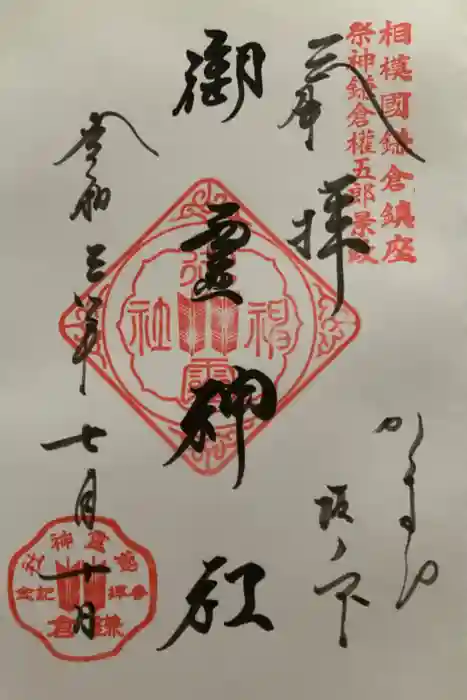 相模國鎌倉鎮座
祭神鎌倉權五郎景政
奉拝
かまくら
坂ノ下
御霊神社
令和三年
七月十日
御靈神社
御靈神社
参拝記念
鎌倉